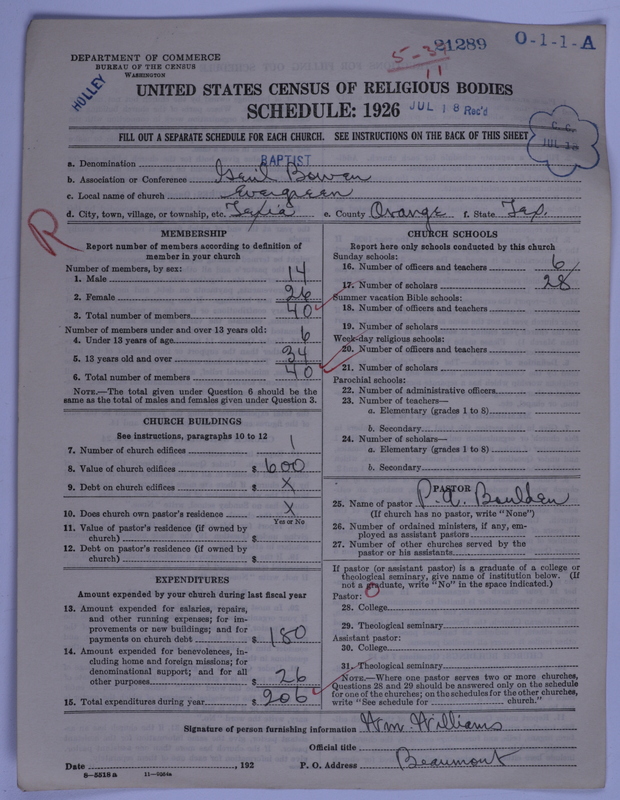 21289 O-1-1-A
5-34
11
DEPARTMENT OF COMMERCE
BUREAU OF THE CENSUS
WASHINGTON
HOLLEY
UNITED STATES CENSUS OF RELIGIOUS BODIES
SCHEDULE: 1926 JUL 18 Rec'd
FILL OUT A SEPARATE SCHEDULE FOR EACH CHURCH. SEE INSTRUCTIONS ON THE BACK OF THIS SHEET
C. C.
JUL
a. Denomination BAPTIST
b. Association or Conference Bowen
c. Local name of church Evergreen
d. City, town, village, or township, etc. e. County Orange f. State Tex.
R
MEMBERSHIP
Report number of members according to definition of member in your church
Number of members, by sex:
1. Male 14
2. Female 26
3. Total number of members 40
Number of members under and over 13 years old:
4. Under 13 years of age 6
5. 13 years old and over 34
6. Total number of members 40
NOTE.—The total given under Question 6 should be the
same as the total of males and females given under Question 3.
CHURCH BUILDINGS
See instructions, paragraphs 10 to 12
7. Number of church edifices 1
8. Value of church edifices $ 600
9. Debt on church edifices $ X
10. Does church own pastor's residence X
Yes or No
11. Value of pastor's residence (if owned by
church) $
12. Debt on pastor's residence (if owned by
church) $
EXPENDITURES
Amount expended by your church during last fiscal year
13. Amount expended for salaries, repairs,
and other running expenses; for im-
provements or new buildings; and for
payments on church debt $ 180
14. Amount expended for benevolences, in-
cluding home and foreign missions; for
denominational support; and for all
other purposes $ 26
15. Total expenditures during year $ 206
CHURCH SCHOOLS
Report here only schools conducted by this church
Sunday schools:
16. Number of officers and teachers 6
17. Number of scholars 28
Summer vacation Bible schools:
18. Number of officers and teachers
19. Number of scholars
Week-day religious schools:
20. Number of officers and teachers
21. Number of scholars
Parochial schools:
22. Number of administrative officers
23. Number of teachers—
a. Elementary (grades 1 to 8)
b. Secondary
24. Number of scholars—
a. Elementary (grades 1 to 8)
b. Secondary
PASTOR
25. Name of pastor P. A. Boulden
(If church has no pastor, write "None")
26. Number of ordained ministers, if any, em-
ployed as assistant pastors
27. Number of other churches served by the
pastor or his assistants
If pastor (or assistant pastor) is a graduate of a college or
theological seminary, give name of institution below. (If
not a graduate, write "No" in the space indicated.)
Pastor: O
28. College
29. Theological seminary
Assistant pastor:
30. College
31. Theological seminary
NOTE.—Where one pastor serves two or more churches,
Questions 28 and 29 should be answered only on the schedule
for one of the churches; on the schedules for the other churches,
write "See schedule for church."
Signature of person furnishing information Wm Williams
Official title
Date , 192 P. O. Address Beaumont
8—5518 a 11—5554a